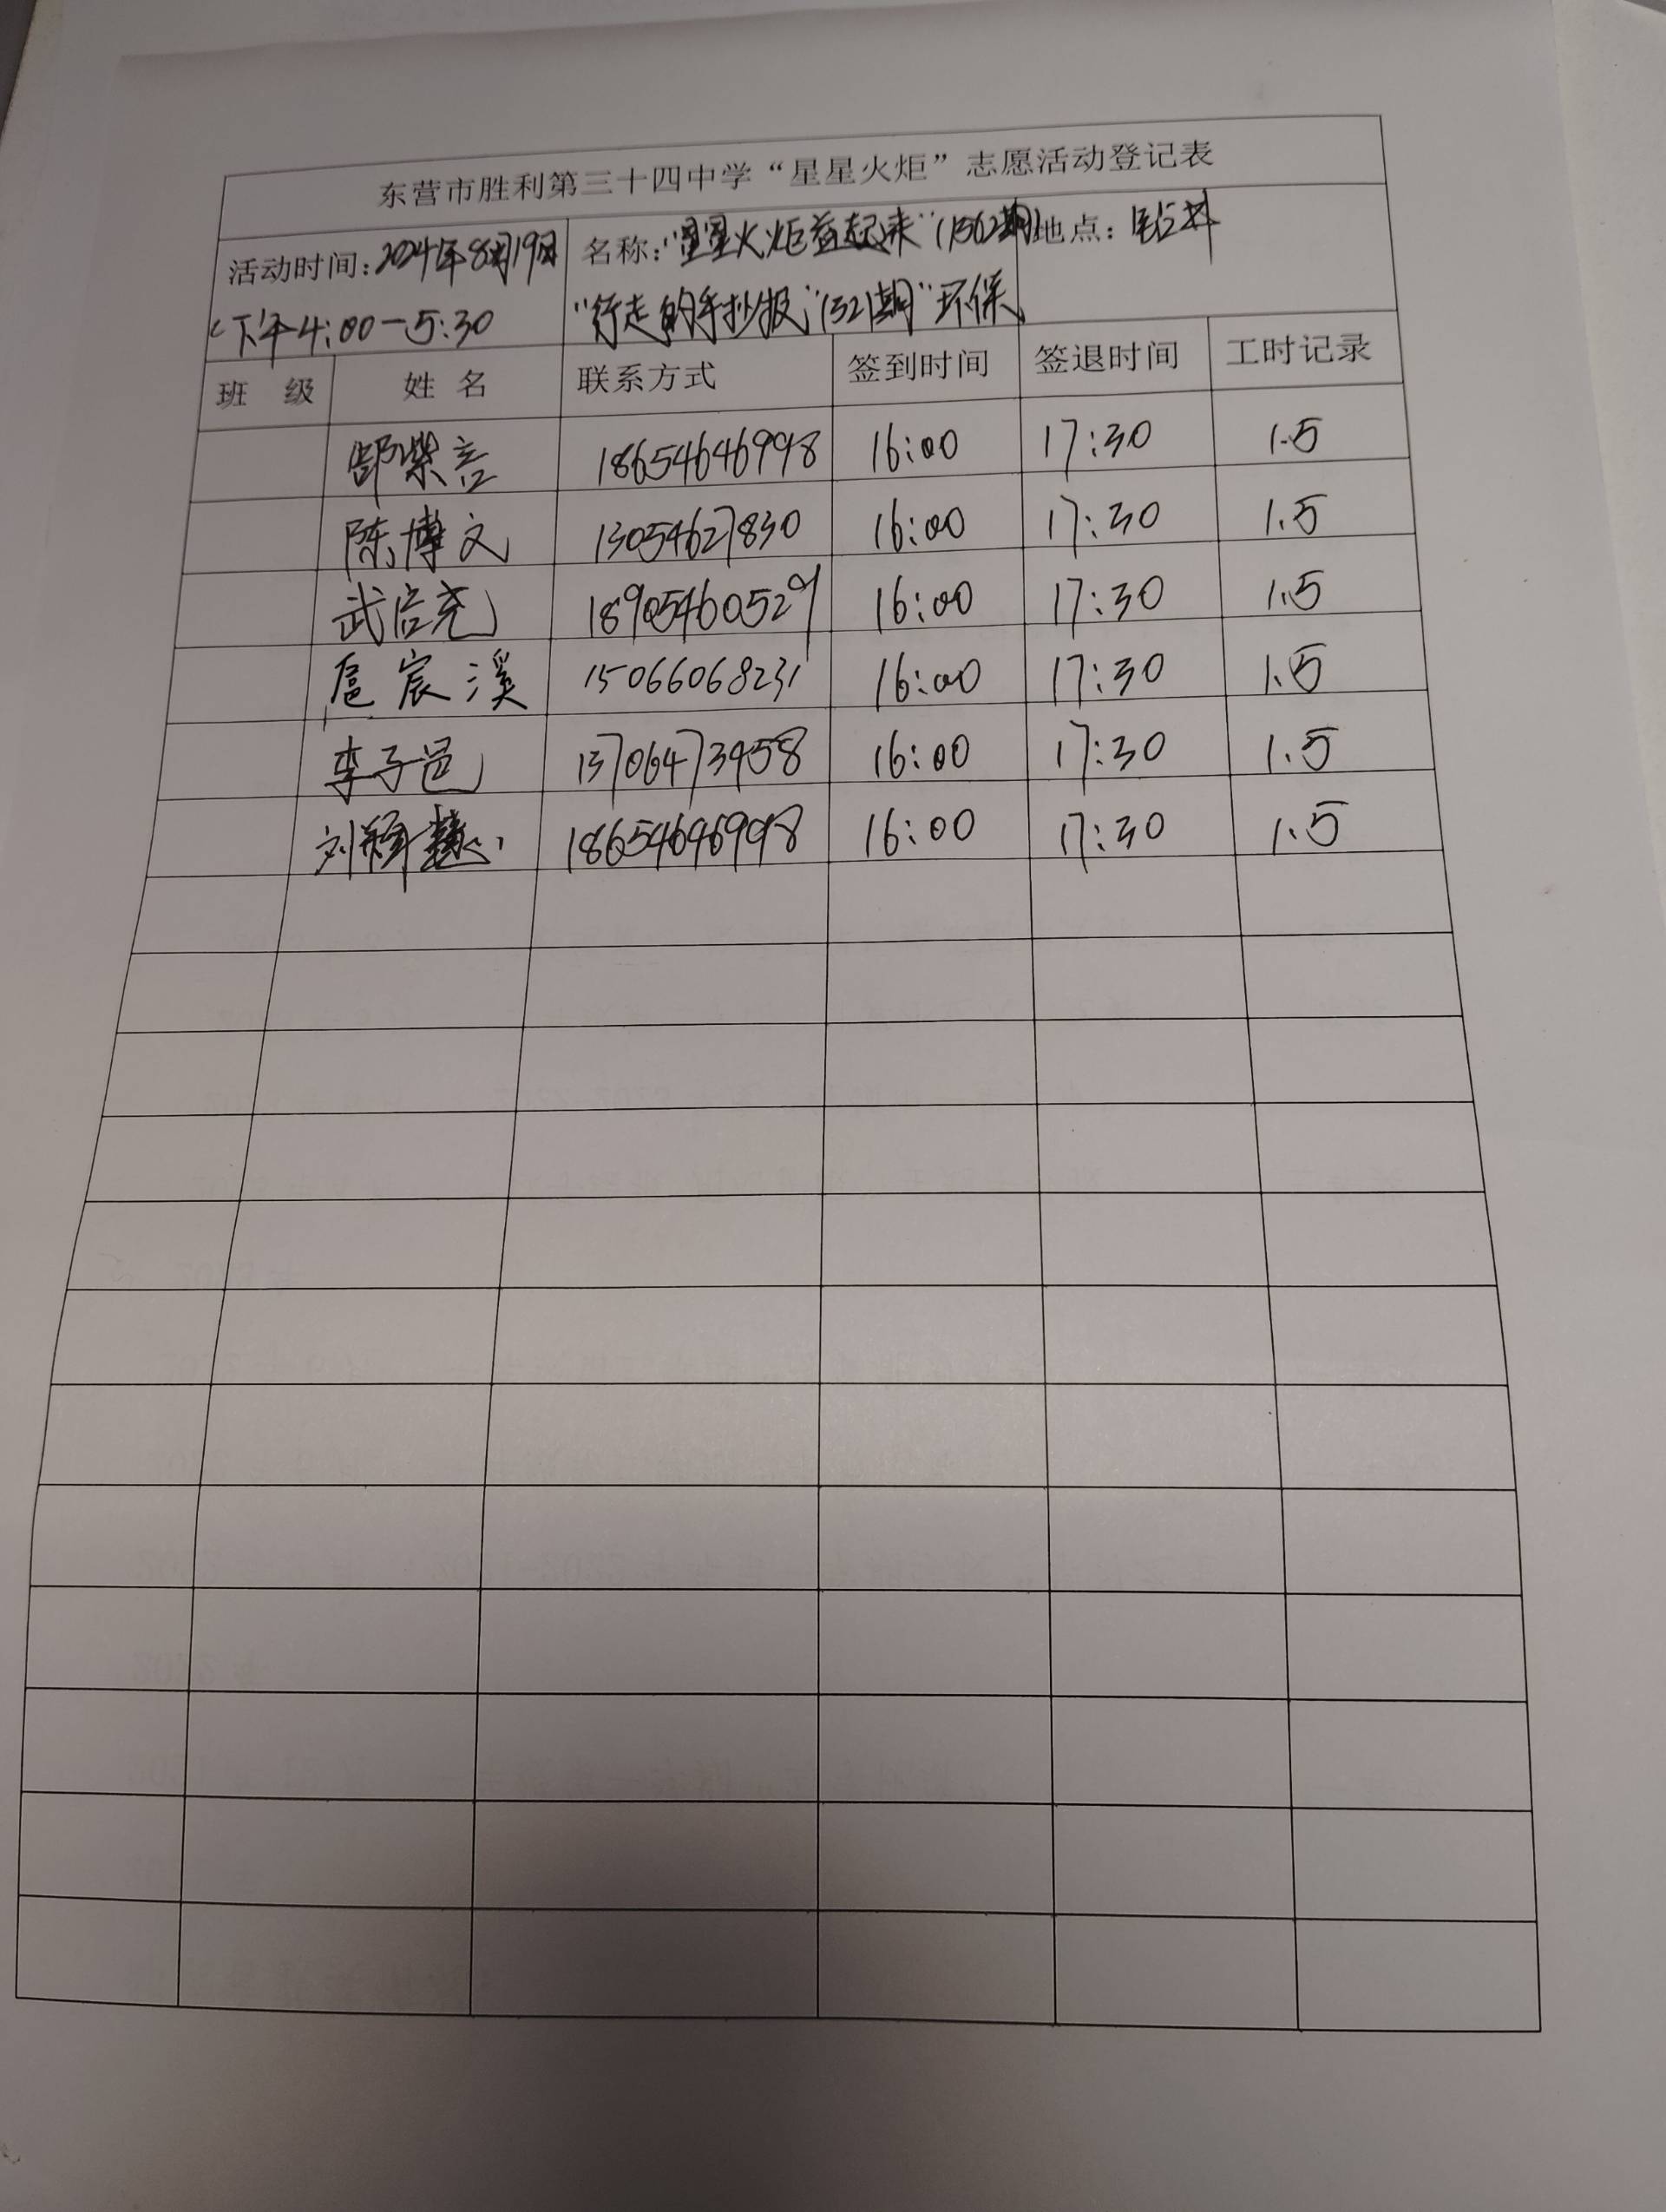 东营市胜利第三十四中学“星星火炬”志愿活动登记表
活动时间：2024年8月19日 名称：“星星火炬益起来”（1562期） 地点：钻井
下午4:00—5:30 “行走的手抄报”1521期“环保
班 级 姓 名 联系方式 签到时间 签退时间 工时记录
郜紫言 18654646998 16:00 17:30 1.5
陈博文 13054627830 16:00 17:30 1.5
武启尧 18905460529 16:00 17:30 1.5
扈宸溪 15066068231 16:00 17:30 1.5
李子邑 13706473958 16:00 17:30 1.5
刘 18654646998 16:00 17:30 1.5